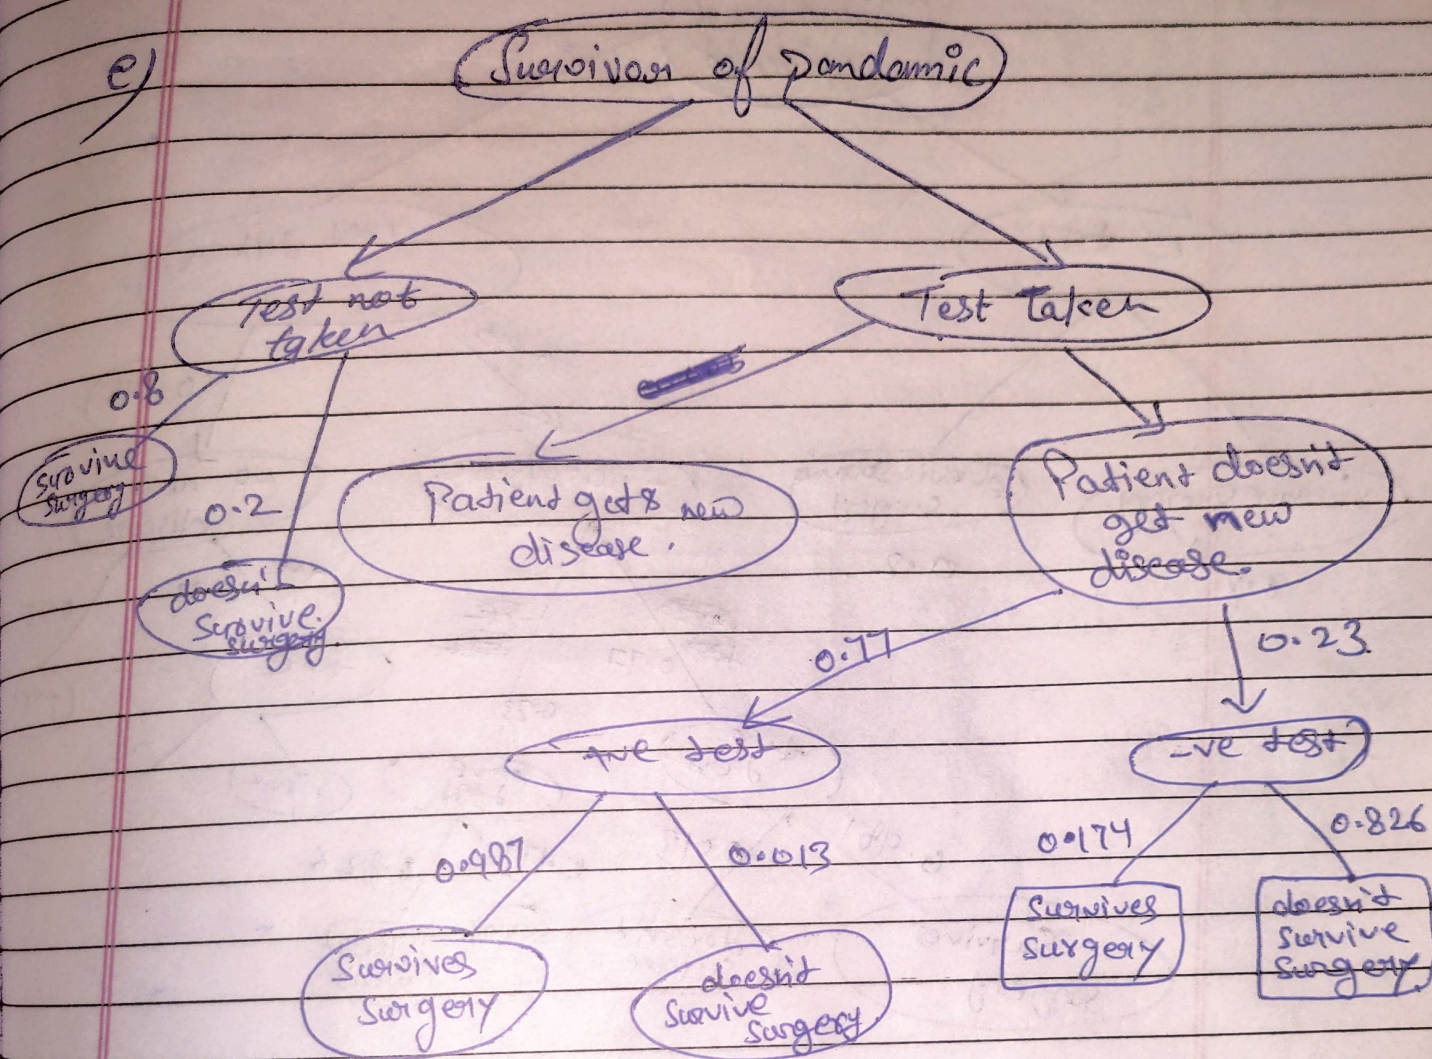 e)
Survivor of pandamic
Test not
taken
Test Taken
0.8
0.2
survive
surgery
doesn't
survive.
surgery.
Patient gets new
disease.
Patient doesn't
get new
disease.
0.77
0.23
+ve test
-ve test
0.987
0.013
0.174
0.826
Survives
surgery
doesn't
survive
surgery.
Survives
surgery
doesn't
survive
surgery